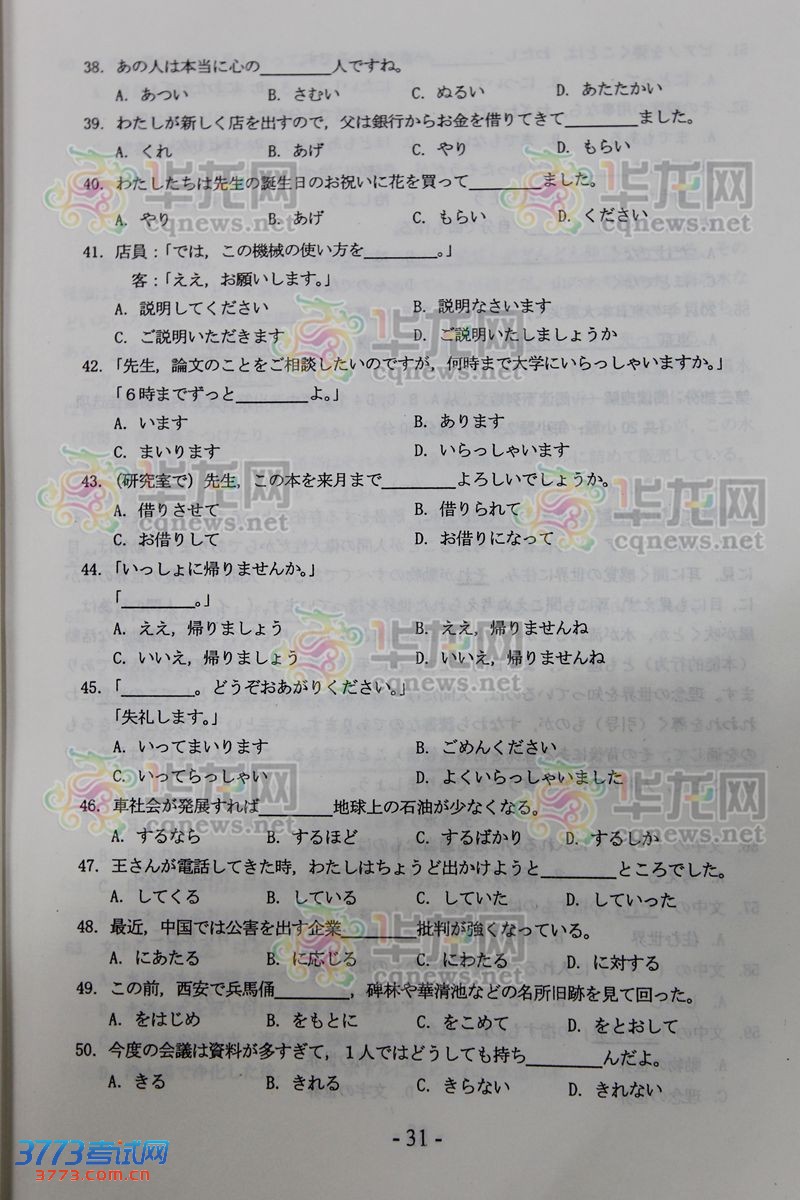 38. あの人は本当に心の________人ですね。
A. あつい B. さむい C. ぬるい D. あたたかい
39. わたしが新しく店を出すので，父は銀行からお金を借りてきて________ました。
A. くれ B. あげ C. やり D. もらい
40. わたしたちは先生の誕生日のお祝いに花を買って________ました。
A. やり B. あげ C. もらい D. ください
41. 店員：「では，この機械の使い方を________。」
客：「ええ，お願いします。」
A. 説明してください B. 説明なさいます
C. ご説明いただきます D. ご説明いたしましょうか
42. 「先生，論文のことをご相談したいのですが，何時まで大学にいらっしゃいますか。」
「６時までずっと________よ。」
A. います B. あります
C. まいります D. いらっしゃいます
43. （研究室で）先生，この本を来月まで________よろしいでしょうか。
A. 借りさせて B. 借りられて
C. お借りして D. お借りになって
44. 「いっしょに帰りませんか。」
「________。」
A. ええ，帰りましょう B. ええ，帰りませんね
C. いいえ，帰りましょう D. いいえ，帰りませんね
45. 「________。どうぞおあがりください。」
「失礼します。」
A. いってまいります B. ごめんください
C. いってらっしゃい D. よくいらっしゃいました
46. 車社会が発展すれば________地球上の石油が少なくなる。
A. するなら B. するほど C. するばかり D. するしか
47. 王さんが電話してきた時，わたしはちょうど出かけようと________ところでした。
A. してくる B. している C. していた D. していった
48. 最近，中国では公害を出す企業________批判が強くなっている。
A. にあたる B. に応じる C. にわたる D. に対する
49. この前，西安で兵馬俑________，碑林や華清池などの名所旧跡を見て回った。
A. をはじめ B. をもとに C. をこめて D. をとおして
50. 今度の会議は資料が多すぎて，１人ではどうしても持ち________んだよ。
A. きる B. きれる C. きらない D. きれない
- 31 -
3773考试网
3773.com.cn
华龙网
cqnews.net